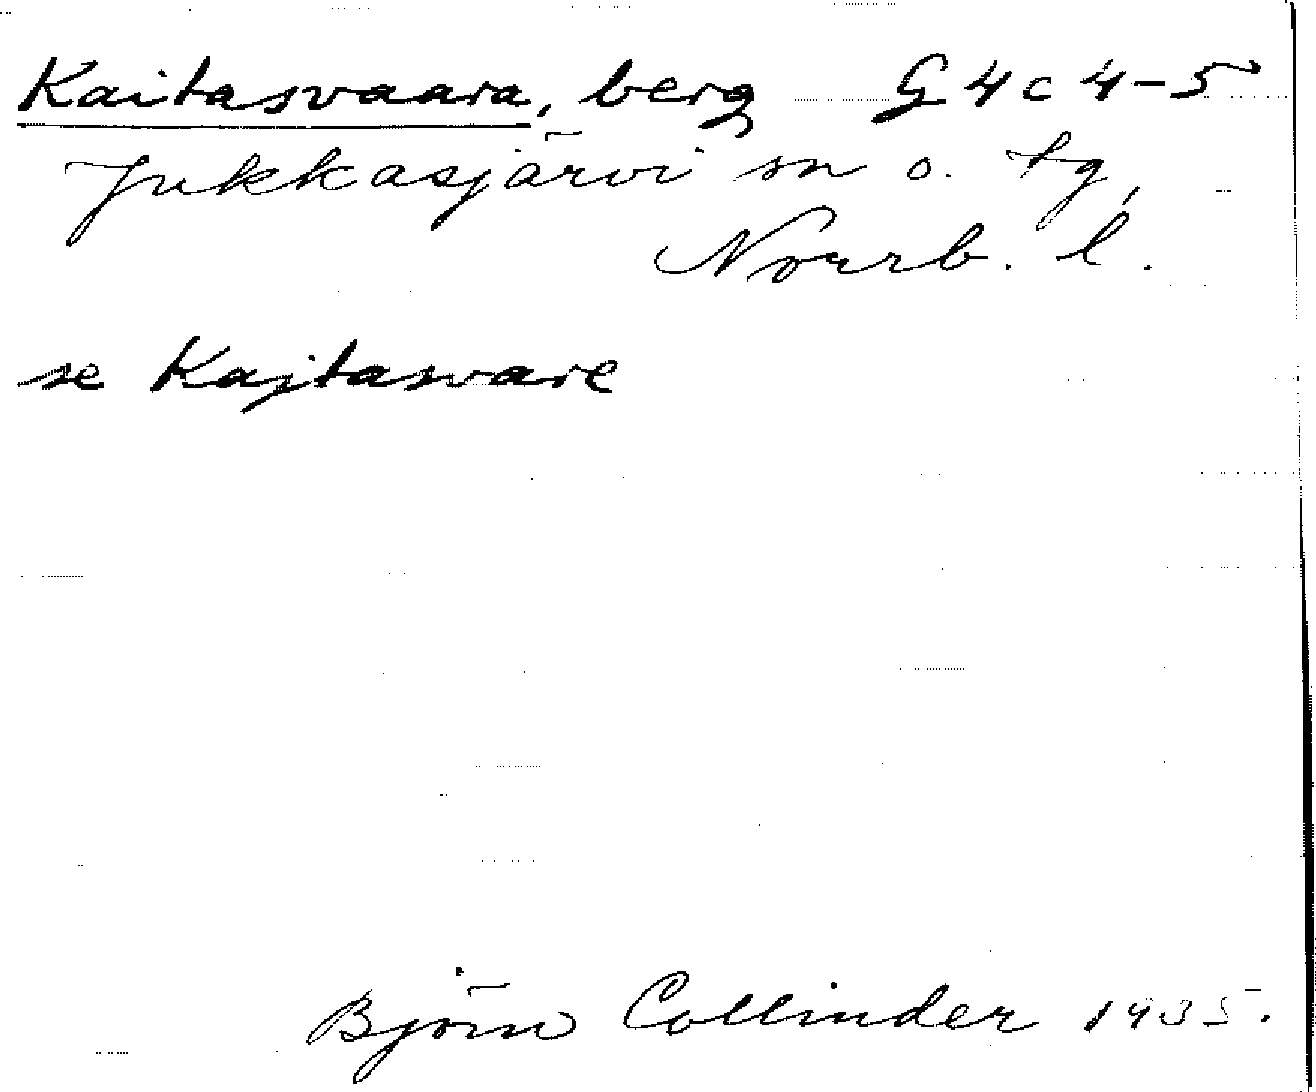 Kaitasvaara, berg G 4 c 4-5
Jukkasjärvi sn o. tg,
Norrb. l.
se Kajtasvare
Björn Collinder 1935.